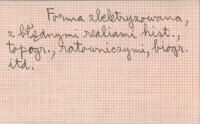 Forma zbeletryzowana,
z błędnymi realiami hist.,
topogr., ratowniczymi, biogr.
itd.